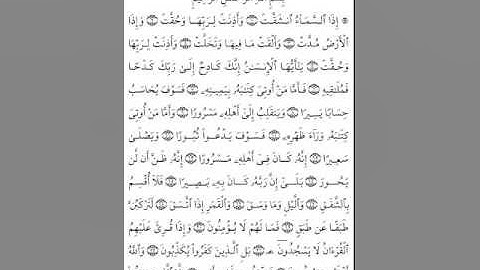 بِسْمِ ٱللَّهِ ٱلرَّحْمَٰنِ ٱلرَّحِيمِ
إِذَا ٱلسَّمَآءُ ٱنشَقَّتْ وَأَذِنَتْ لِرَبِّهَا وَحُقَّتْ وَإِذَا
ٱلْأَرْضُ مُدَّتْ وَأَلْقَتْ مَا فِيهَا وَتَخَلَّتْ وَأَذِنَتْ لِرَبِّهَا
وَحُقَّتْ يَٰٓأَيُّهَا ٱلْإِنسَٰنُ إِنَّكَ كَادِحٌ إِلَىٰ رَبِّكَ كَدْحًا
فَمُلَٰقِيهِ فَأَمَّا مَنْ أُوتِىَ كِتَٰبَهُۥ بِيَمِينِهِۦ فَسَوْفَ يُحَاسَبُ
حِسَابًا يَسِيرًا وَيَنقَلِبُ إِلَىٰٓ أَهْلِهِۦ مَسْرُورًا وَأَمَّا مَنْ أُوتِىَ
كِتَٰبَهُۥ وَرَآءَ ظَهْرِهِۦ فَسَوْفَ يَدْعُوا۟ ثُبُورًا وَيَصْلَىٰ
سَعِيرًا إِنَّهُۥ كَانَ فِىٓ أَهْلِهِۦ مَسْرُورًا إِنَّهُۥ ظَنَّ أَن لَّن
يَحُورَ بَلَىٰٓ إِنَّ رَبَّهُۥ كَانَ بِهِۦ بَصِيرًا فَلَآ أُقْسِمُ
بِٱلشَّفَقِ وَٱلَّيْلِ وَمَا وَسَقَ وَٱلْقَمَرِ إِذَا ٱتَّسَقَ لَتَرْكَبُنَّ
طَبَقًا عَن طَبَقٍ فَمَا لَهُمْ لَا يُؤْمِنُونَ وَإِذَا قُرِئَ عَلَيْهِمُ
ٱلْقُرْءَانُ لَا يَسْجُدُونَ بَلِ ٱلَّذِينَ كَفَرُوا۟ يُكَذِّبُونَ وَٱللَّهُ